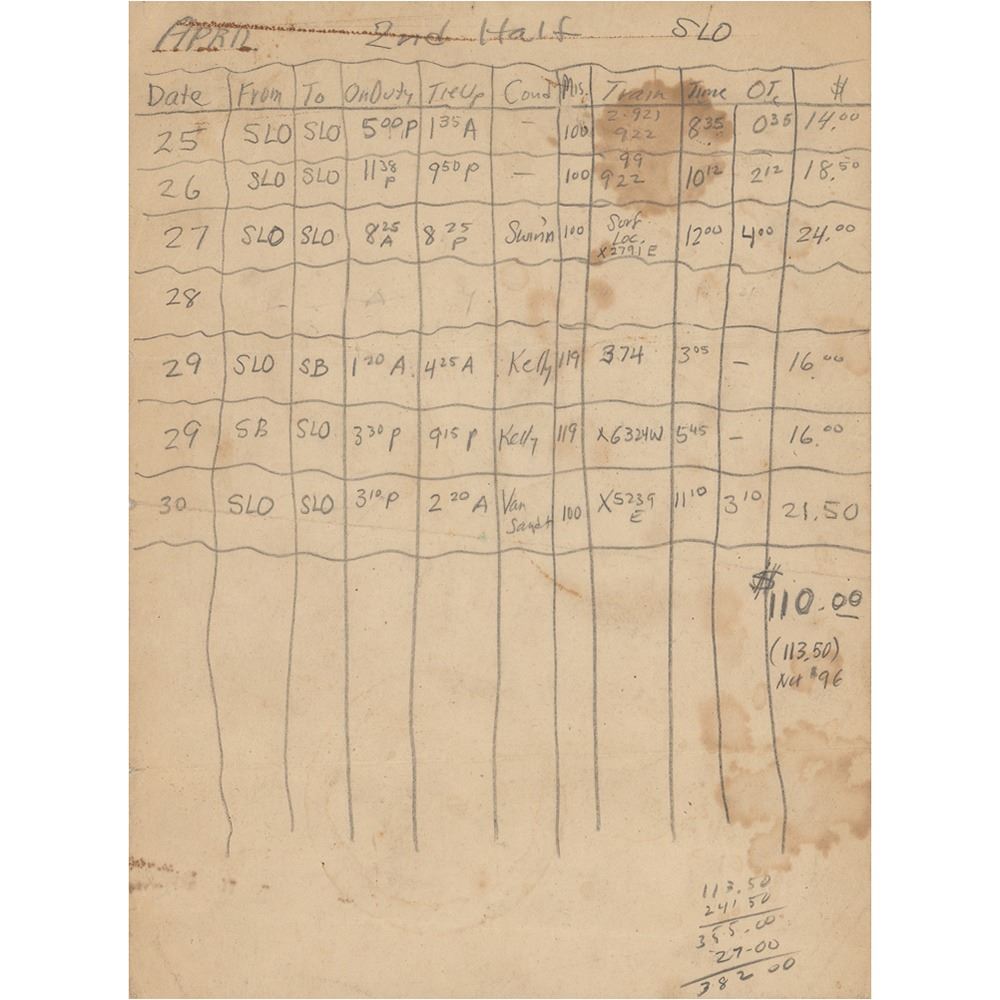 APRIL 2nd Half SLO
Date From To OnDuty TieUp Cond Mis. Train Time OT. $
25 SLO SLO 5 00 P 1 35 A — 100 2-921 922 8 35 0 35 14.00
26 SLO SLO 11 38 P 9 50 P — 100 99 922 10 12 2 12 18.50
27 SLO SLO 8 25 A 8 25 P Swinn 100 Surf Loc. X2791E 12 00 4 00 24.00
28
29 SLO SB 1 20 A. 4 25 A Kelly 119 374 3 05 — 16.00
29 SB SLO 3 30 P 9 15 P Kelly 119 X6324W 5 45 — 16.00
30 SLO SLO 3 10 P 2 20 A Van Sandt 100 X5239 E 11 10 3 10 21.50
$110.00
(113.50)
Net $96
113.50
241 50
355.00
27-00
382 00